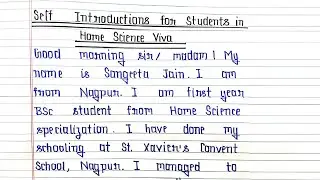 Self Introductions for Students in
Home Science Viva
Good morning sir/madam! My
name is Sangeeta Jain. I am
from Nagpur. I am first year
BSc student from Home Science
specialization. I have done my
schooling at St. Xavier's Convent
School, Nagpur. I managed to